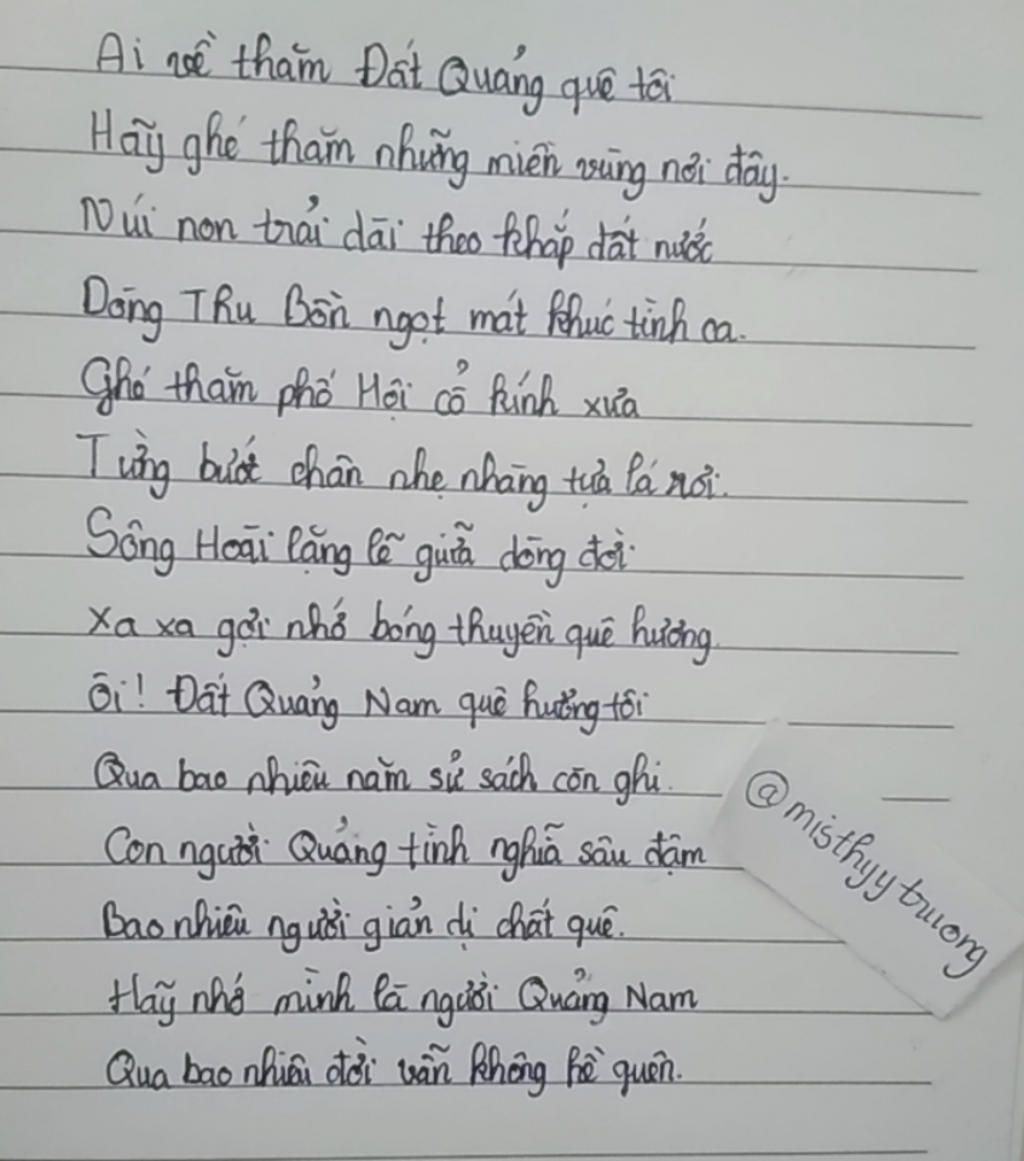 Ai về thăm Đất Quảng quê tôi
Hãy ghé thăm những miền vùng nơi đây.
Núi non trải dài theo khắp đất nước
Dòng Thu Bồn ngọt mát khúc tình ca.
Ghé thăm phố Hội cổ kính xưa
Từng bước chân nhẹ nhàng tựa lá rơi.
Sông Hoài lặng lẽ giữa dòng đời
Xa xa gợi nhớ bóng thuyền quê hương.
Ôi! Đất Quảng Nam quê hương tôi
Qua bao nhiêu năm sử sách còn ghi.
Con người Quảng tình nghĩa sâu đậm
Bao nhiêu người giản dị chất quê.
Hãy nhớ mình là người Quảng Nam
Qua bao nhiêu đời vẫn không hề quên.
@misthyytruong